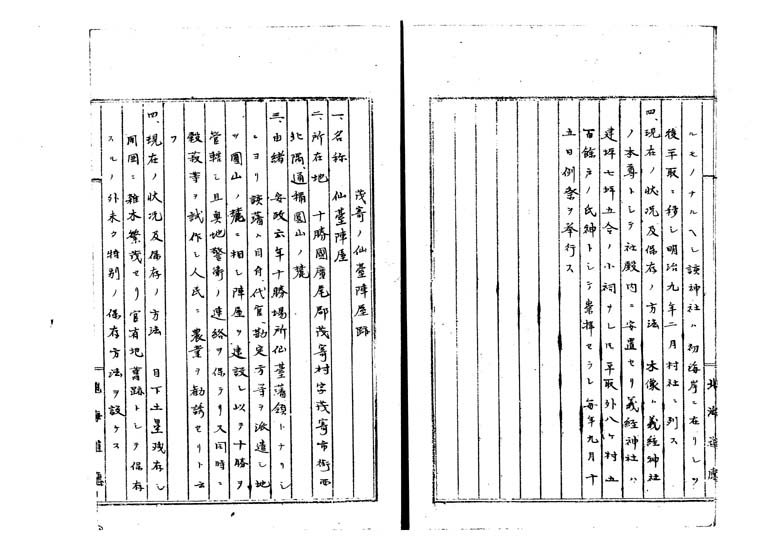 ルモノナルヘシ該神社ハ初海岸ニ在リシヲ
後平取ニ移シ明治九年二月村社ニ列ス
四、現在ノ状況及保存ノ方法 木像ハ義経神社
ノ本尊トシテ社殿内ニ安置セリ義経神社ハ
建坪七坪五合ノ小祠ナレ𪜈平取外八ヶ村五
百餘戸ノ氏神トシテ崇拝セラレ毎年九月十
五日例祭ヲ挙行ス
北海道廳
茂寄ノ仙臺陣屋跡
一、名称 仙臺陣屋
二、所在地 十勝國廣尾郡茂寄村字茂寄市街西
北隅、通稱圓山ノ麓
三、由緒 安政六年十勝場所仙臺藩領トナリシ
ニヨリ該藩ハ目付代官、勘定方等ヲ派遣シ地
ヲ圓山ノ麓ニ相シ陣屋ヲ建設シ以テ十勝ヲ
管轄シ且奥地警衛ノ連絡ヲ保テリ又同時ニ
穀菽等ヲ試作シ人民ニ農業ヲ勧誘セリト云
フ
四、現在ノ状況及保存ノ方法 目下土塁残存シ
周囲ニ雑木繁茂セリ官有地舊跡トシテ保存
スルノ外未タ特別ノ保存方法ヲ設ケス
北海道廳